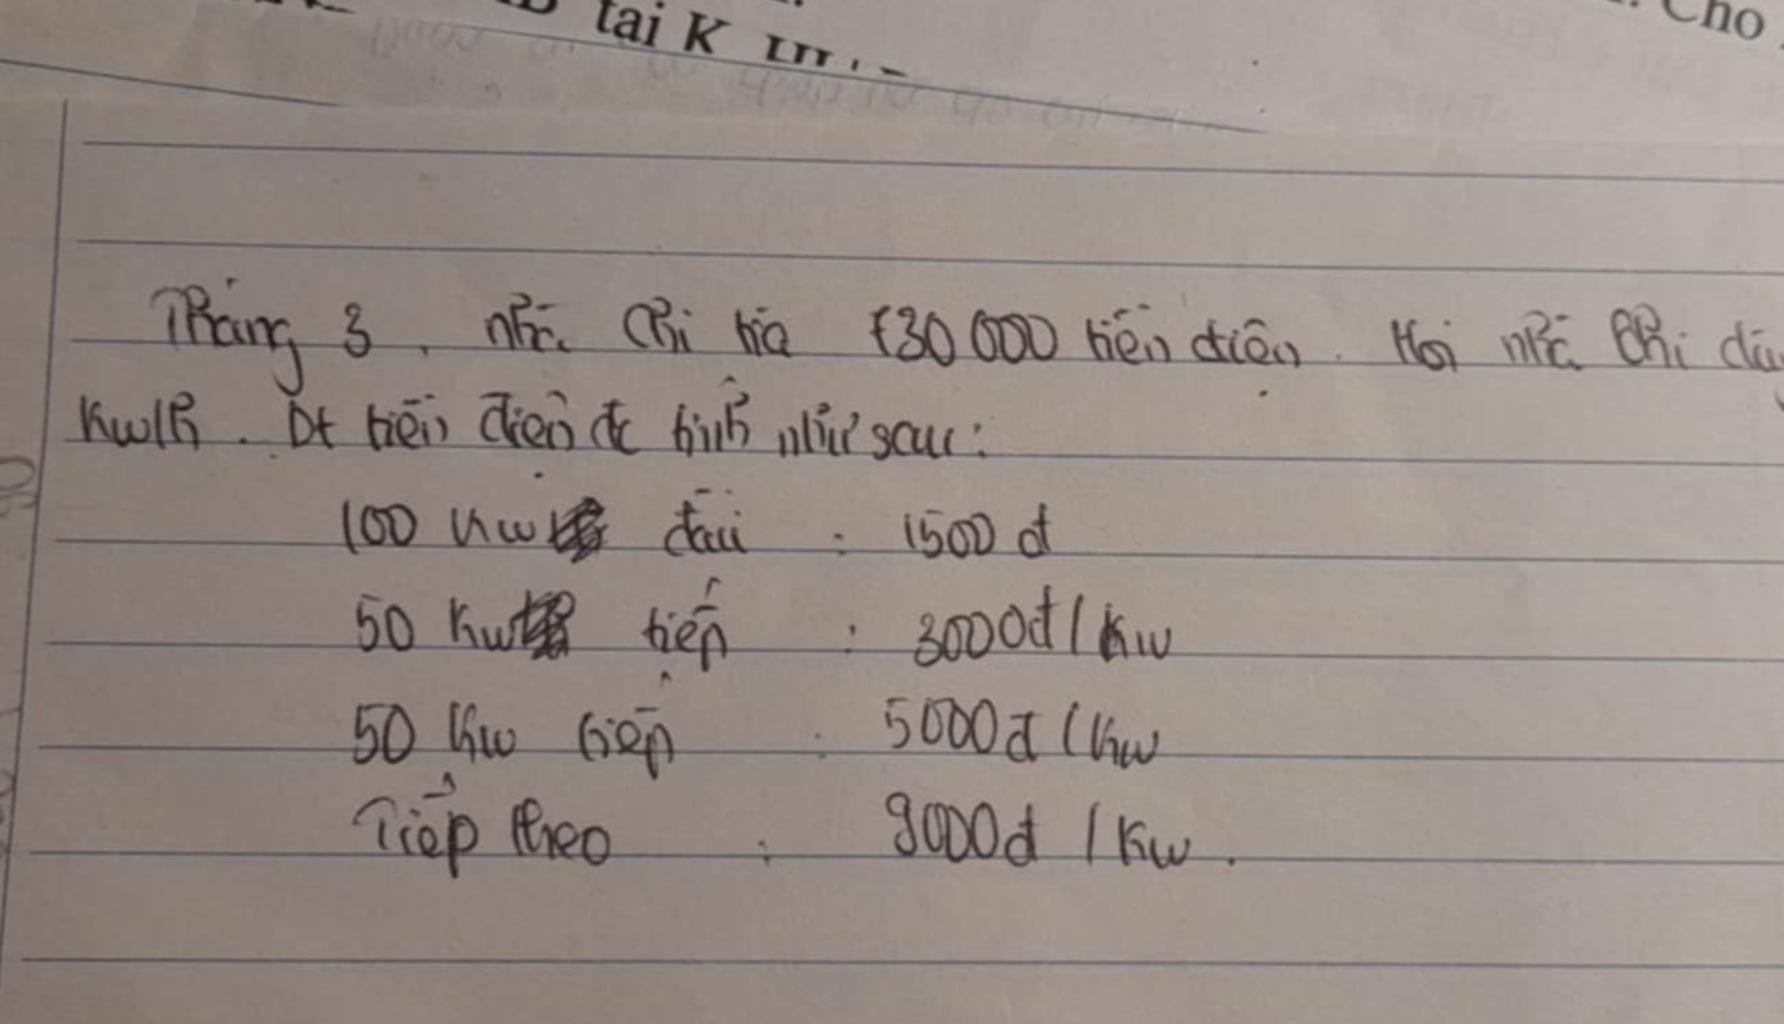 tai K
Cho
Tháng 3, nhà Chi trả 830 000 tiền điện. Hỏi nhà Chi
Kwh. Bt tiền điện đc tính như sau:
100 Kw đầu : 1500 đ
50 Kw tiếp : 3000đ / Kw
50 Kw tiếp : 5000đ / Kw
Tiếp theo : 9000đ / Kw.